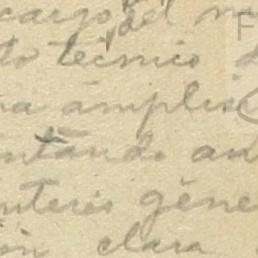 cargo del
to técnico d
na ámplis
ntando an
nteris géne
ión clara